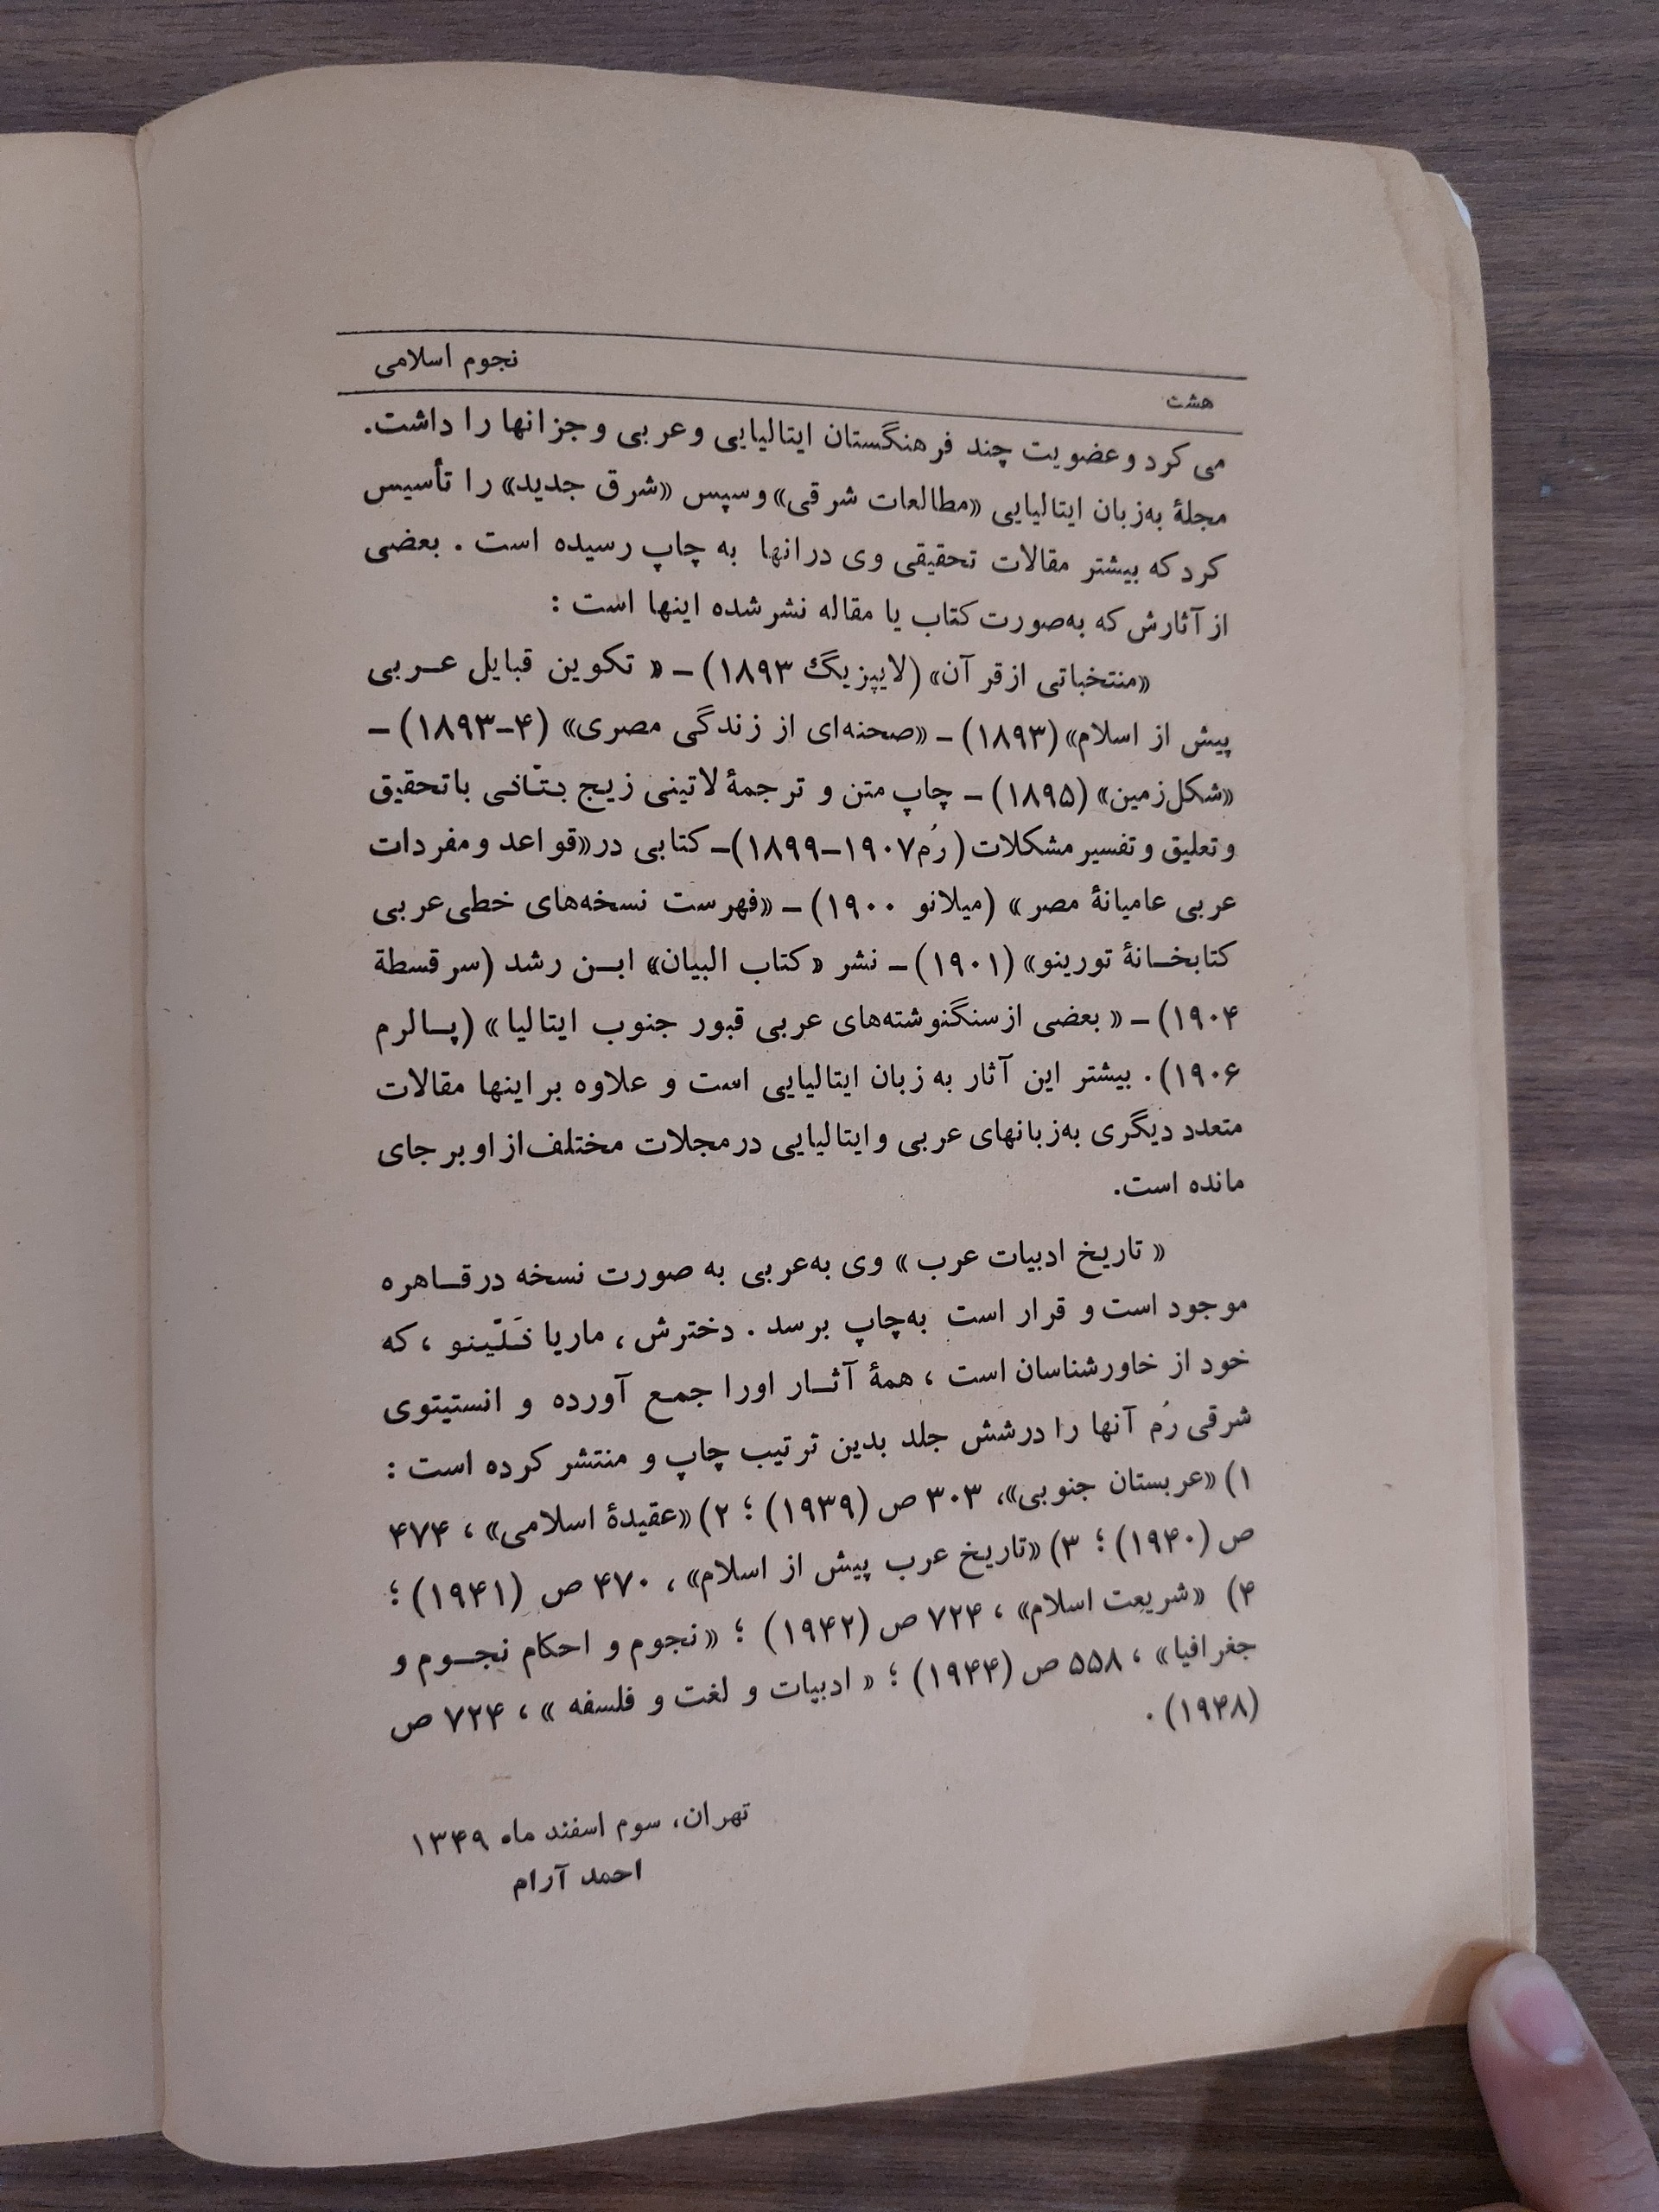 هشت
نجوم اسلامی
می کرد و عضویت چند فرهنگستان ایتالیایی و عربی و جز انها را داشت.
مجلهٔ به‌زبان ایتالیایی «مطالعات شرقی» و سپس «شرق جدید» را تأسیس
کرد که بیشتر مقالات تحقیقی وی در انها به چاپ رسیده است . بعضی
از آثارش که به‌صورت کتاب یا مقاله نشر شده اینها است :
«منتخباتی از قر آن» (لایپزیگ ۱۸۹۳) – « تکوین قبایل عــربی
پیش از اسلام» (۱۸۹۳) – «صحنه‌ای از زندگی مصری» (۴–۱۸۹۳) –
«شکل زمین» (۱۸۹۵) – چاپ متن و ترجمهٔ لاتینی زیج بتّانی با تحقیق
و تعلیق و تفسیر مشکلات (رُم ۱۹۰۷–۱۸۹۹) – کتابی در «قواعد و مفردات
عربی عامیانهٔ مصر» (میلانو ۱۹۰۰) – «فهرست نسخه‌های خطی عربی
کتابخــانهٔ تورینو» (۱۹۰۱) – نشر «کتاب البیان» ابــن رشد (سرقسطة
۱۹۰۴) – « بعضی از سنگنوشته‌های عربی قبور جنوب ایتالیا » (پــالرم
۱۹۰۶). بیشتر این آثار به زبان ایتالیایی است و علاوه بر اینها مقالات
متعدد دیگری به‌زبانهای عربی و ایتالیایی در مجلات مختلف از او بر جای
مانده است.
« تاریخ ادبیات عرب » وی به‌عربی به صورت نسخه در قــاهره
موجود است و قرار است به‌چاپ برسد . دخترش ، ماریا نَلّینو ، که
خود از خاورشناسان است ، همهٔ آثــار اورا جمع آورده و انستیتوی
شرقی رُم آنها را در شش جلد بدین ترتیب چاپ و منتشر کرده است :
۱) «عربستان جنوبی»، ۳۰۳ ص (۱۹۳۹) ؛ ۲) «عقیدهٔ اسلامی» ، ۴۷۴
ص (۱۹۴۰) ؛ ۳) «تاریخ عرب پیش از اسلام» ، ۴۷۰ ص (۱۹۴۱) ؛
۴) «شریعت اسلام» ، ۷۲۴ ص (۱۹۴۲) ؛ «نجوم و احکام نجــوم و
جغرافیا» ، ۵۵۸ ص (۱۹۴۴) ؛ « ادبیات و لغت و فلسفه » ، ۷۲۴ ص
(۱۹۴۸) .
تهران، سوم اسفند ماه ۱۳۴۹
احمد آرام